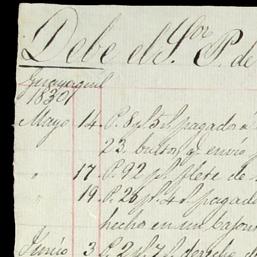 Debe el Sor P. de
Guayaquil
1830
Mayo 14 P. 8 ps 5 rl pagado a
23 bustos y envio
" 17 P. 92 ps flete de
" 19 P. 26 ps 4 rl pagado
hecho en un cajon
Junio 3 P. 2 ps 7 rl derecho de